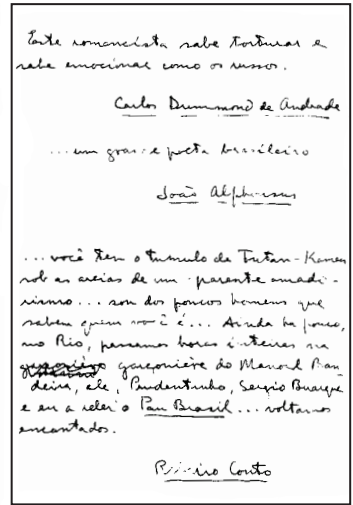 Este romancista sabe torturar e
sabe emocionar como os russos.
Carlos Drummond de Andrade
...um grande poeta brasileiro
João Alphonsus
...você tem o tumulo de Tutan-Kamen
sob as areias de um parente
... sou dos poucos homens que
sabem quem você é... Ainda ha pouco,
no Rio, passamos horas inteiras na
garçonière do Manoel Ban-
deira, ele, Prudentinho, Sergio Buarque
e eu a reler o Pau Brasil... voltamos
encantados.
Ribeiro Couto